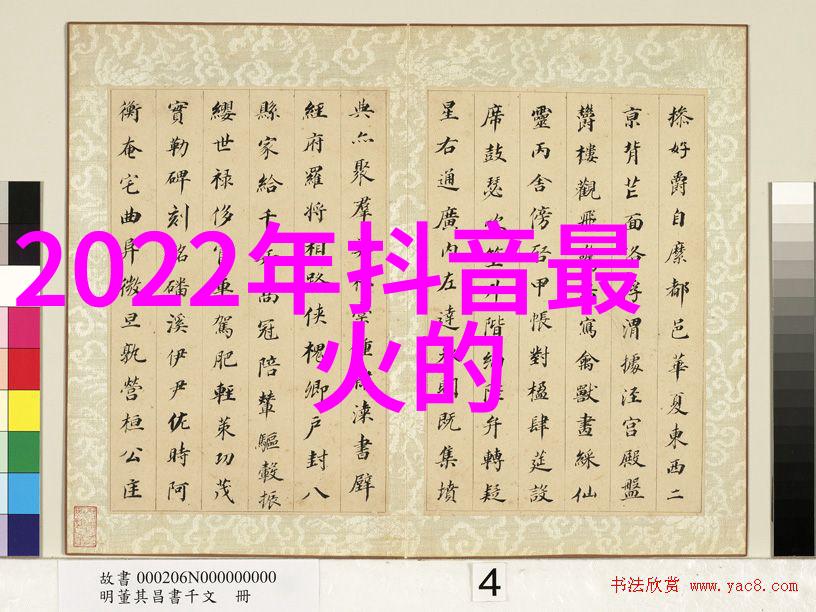 2022年抖音最
火的
操好爵自縻都邑華夏東西二
京背芒面洛浮渭據涇宮殿盤
鬱樓觀飛寫禽獸畫綵仙
靈丙舍傍啓甲帳對楹肆筵設
席鼓瑟吹笙升階納陛弁轉疑
星右通廣內左達既集墳
典亦聚羣鍾漆書壁
經府羅將相路俠槐卿戶封八
縣家給千兵高冠陪輦驅轂振
纓世祿侈富車駕肥輕策功茂
實勒碑刻銘磻溪伊尹佐時阿
衡奄宅曲阜微旦孰營桓公匡
故書 000206N000000000
明董其昌書千文 冊
4
书法欣赏 www.yac8.com